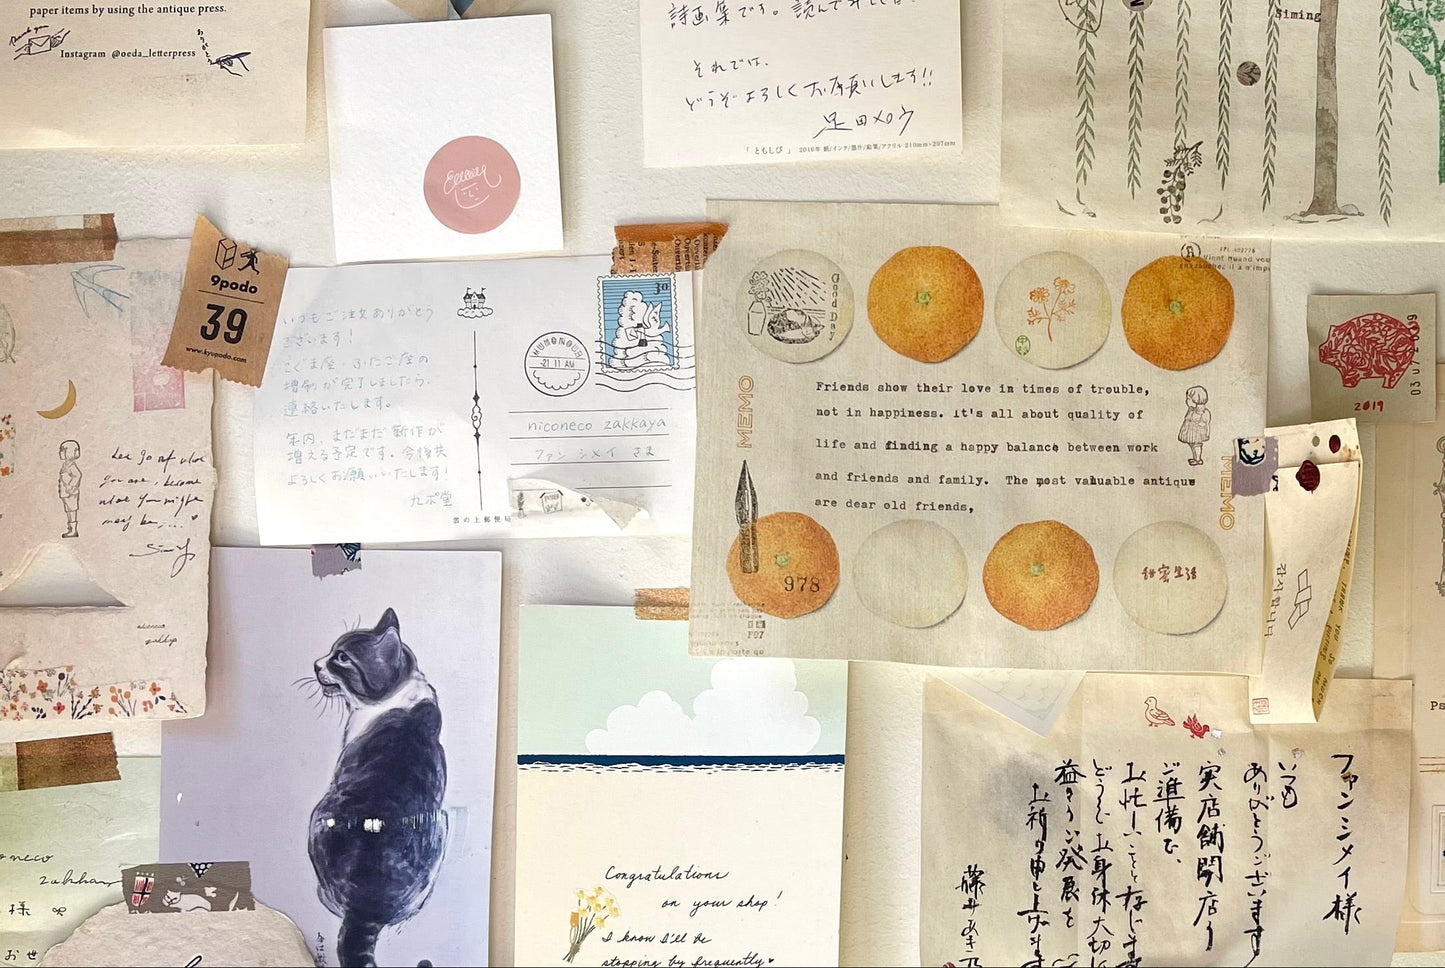 paper items by using the antique press.
Thank you
Instagram @oeda_letterpress
ありがとう
詩画集です。読んで
それでは、
どうぞよろしくお願いします!!
足田メロウ
「ともしび」 2016年 紙/インク/墨汁/鉛筆/アクリル 210mm×297mm
Siming
9podo
39
www.kyupodo.com
いつもご注文ありがとう
ございます!
こぐま座、ふたご座の
増刷が完了しましたら、
連絡いたします。
年内、まだまだ新作が
増える予定です。今後共
よろしくお願いいたします!
九ポ堂
雲の上郵便局
30
21 11 AM
niconeco zakkaya
ファン シメイ さま
Good Day
Vient quand vou
MEMO
Friends show their love in times of trouble,
not in happiness. it's all about quality of
life and finding a happy balance between work
and friends and family. The most valuable antique
are dear old friends,
MEMO
978
甜蜜生活
14
F07
2019
감사합니다
THANK YOU SO MUCH
Let go of who
you are, become
who you might
may be....
niconeco
zakkaya
Zakkaya
様
Congratulations
on your shop!
I know I'll be
stopping by frequently
ファンシメイ様
いつも
ありがとうございます
実店舗開店の
ご準備で、
お忙しいことと存じます
どうぞお身体大切に
益々のご発展を
お祈り申し上げます
藤井あき乃
Ps